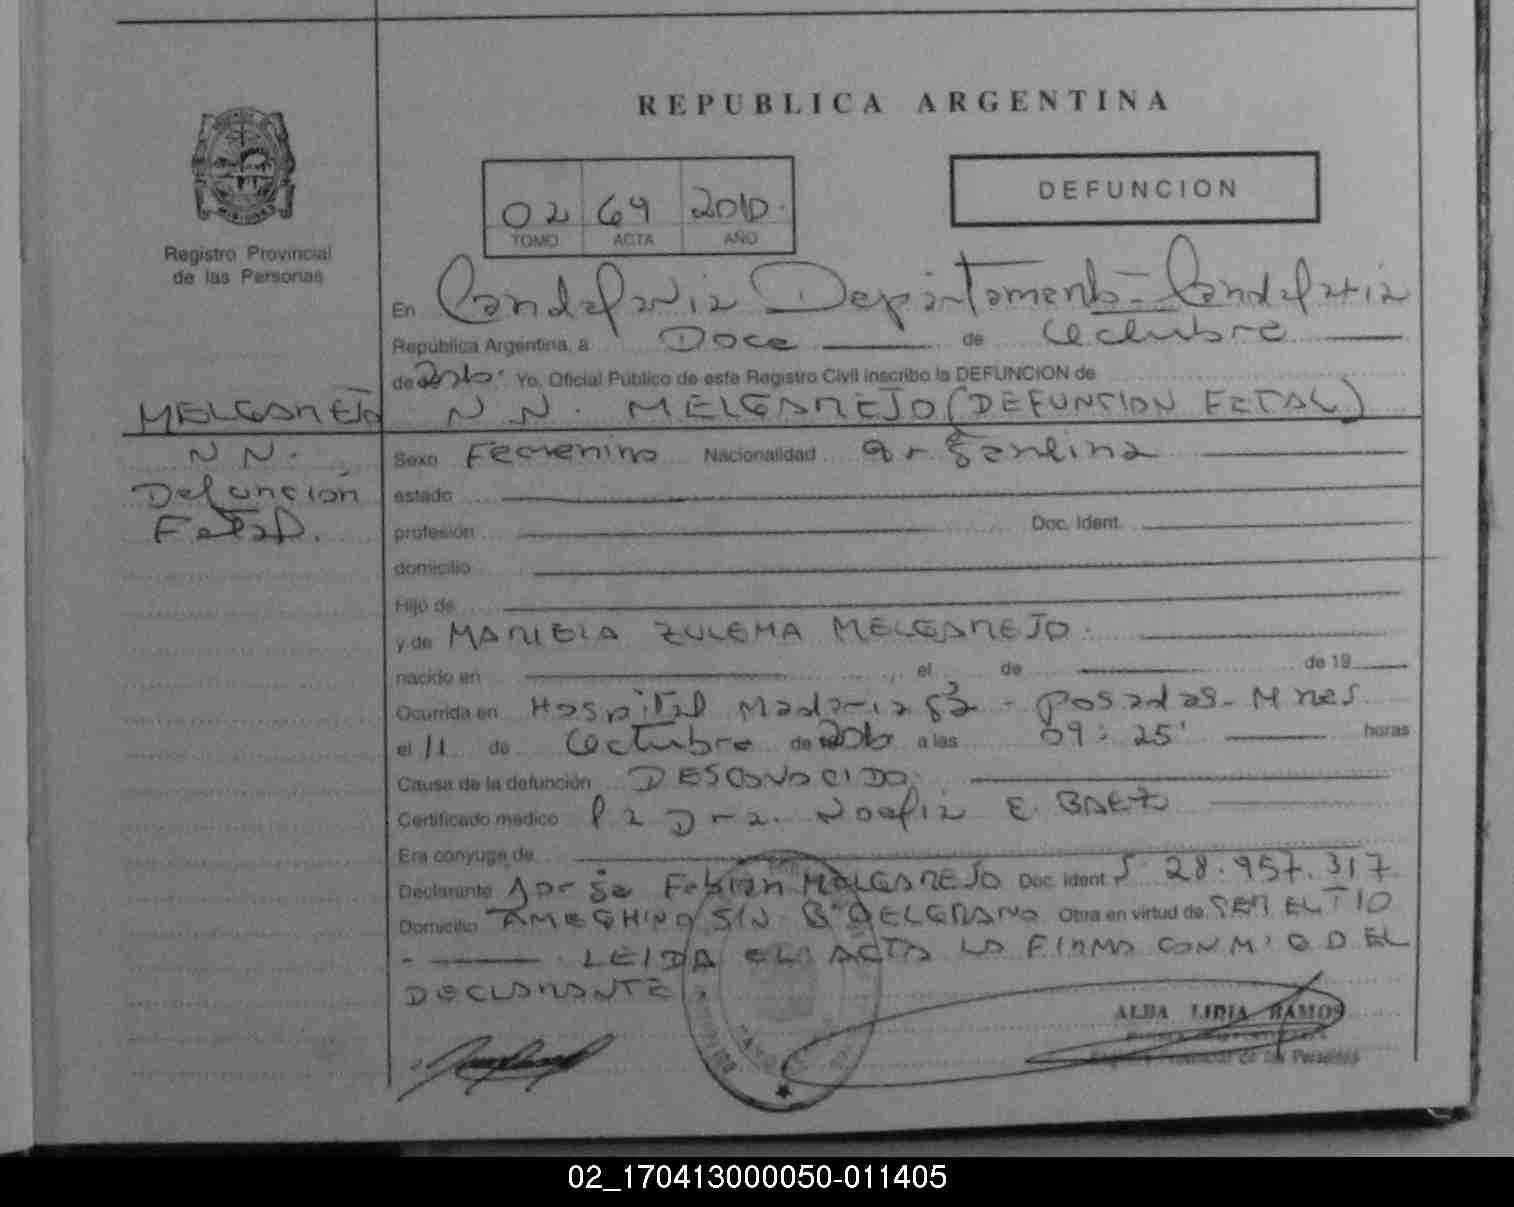 REPUBLICA ARGENTINA
DEFUNCION
02 69 2010
TOMO ACTA AÑO
Registro Provincial
de las Personas
En Candelaria Departamento - Candelaria
República Argentina, a Doce de Octubre
de 2010. Yo, Oficial Público de este Registro Civil inscribo la DEFUNCION de
MELGAREJO N N. MELGAREJO (DEFUNCION FETAL)
N N.
Defunción
Fetal.
Sexo Femenino Nacionalidad argentina
estado
profesión Doc. Ident.
domicilio
Hijo de
y de MARIELA ZULEMA MELGAREJO.
nacido en el de de 19
Ocurrida en Hospital Madariaga - Posadas - Mnes.
el 11 de Octubre de 2010 a las 09:25' horas
Causa de la defunción DESCONOCIDO.
Certificado médico la Dra. Noelia E. BAEZ
Era conyuge de
Declarante Jorge Fabian MELGAREJO Doc. Ident. 28.957.317
Domicilio AMEGHINO S/N Bº BELGRANO Obra en virtud de SER EL TIO
LEIDA EL ACTA LA FIRMA CONMIGO EL
DECLARANTE.
ALBA LIDIA RAMOS
Registro Provincial de las Personas
02_170413000050-011405